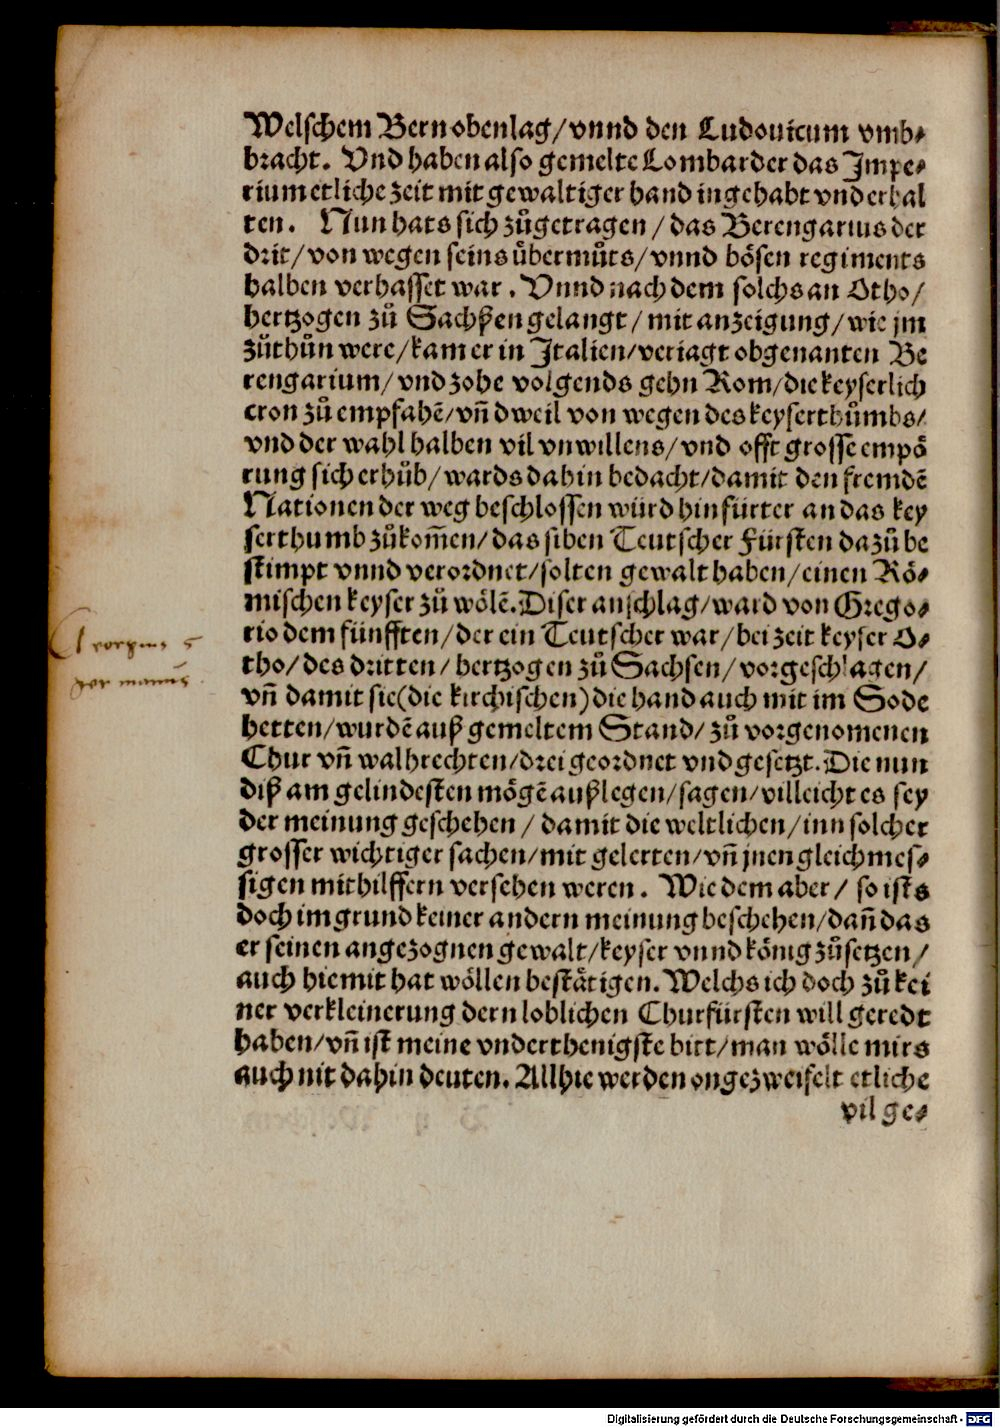 Welschem Bern obenlag/ vnnd den Ludouicum vmb⸗
bracht. Vnd haben also gemelte Lombarder das Impe⸗
rium etliche zeit mit gewaltiger hand ingehabt vnd erhal
ten. Nun hats sich zůgetragen / das Berengarius der
drit/ von wegen seins übermůts/ vnnd bösen regiments
halben verhasset war. Vnnd nach dem solchs an Otho/
hertzogen zů Sachßen gelangt / mit anzeigung/ wie jm
zůthůn were/ kam er in Italien/ veriagt obgenanten Be
rengarium/ vnd zohe volgends gehn Rom/ die keyserlich
cron zů empfahē/ vñ dweil von wegen des keyserthůmbs/
vnd der wahl halben vil vnwillens/ vnd offt grosse empö
rung sich erhůb/ wards dahin bedacht/ damit den fremdē
Nationen der weg beschlossen würd hinfürter an das key
serthumb zůkom̄en/ das siben Teutscher Fürsten dazů be
stimpt vnnd verordnet/ solten gewalt haben/ einen Rö⸗
mischen keyser zů wölē. Diser anschlag/ ward von Grego⸗
rio dem fünfften/ der ein Teutscher war/ bei zeit keyser O⸗
tho/ des dritten/ hertzogen zů Sachsen/ vorgeschlagen/
vñ damit sie (die kirchischen) die hand auch mit im Sode
hetten/ wurdē auß gemeltem Stand/ zů vorgenomenen
Chur vñ walhrechten/ drei geordnet vnd gesetzt. Die nun
diß am gelindesten mögē außlegen/ sagen/ villeicht es sey
der meinung geschehen / damit die weltlichen/ inn solcher
grosser wichtiger sachen/ mit gelerten/ vñ jnen gleichmes⸗
sigen mithilffern versehen weren. Wie dem aber/ so ists
doch im grund keiner andern meinung beschehen/ dañ das
er seinen angezognen gewalt/ keyser vnnd könig zůsetzen/
auch hiemit hat wöllen bestätigen. Welchs ich doch zů kei
ner verkleinerung dern loblichen Churfürsten will geredt
haben/ vñ ist meine vnderthenigste bitt/ man wölle mirs
auch nit dahin deuten. Allhie werden ongezweifelt etliche
vil ge⸗
5
germanus
Digitalisierung gefördert durch die Deutsche Forschungsgemeinschaft - DFG